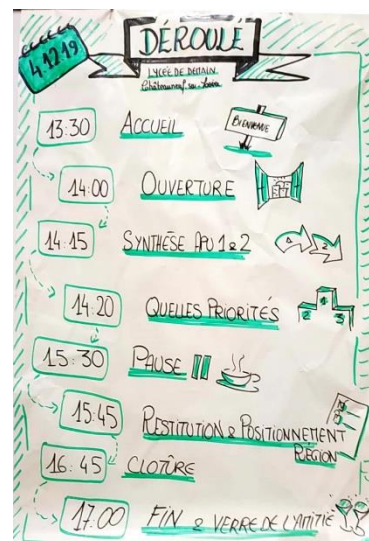 4.12.19
DÉROULÉ
LYCÉE DE DÉTAIN
Châteauneuf-sur-Loire
13:30 ACCUEIL
BIENVENUE
14:00 OUVERTURE
14:15 SYNTHÈSE APU 1 & 2
14:20 QUELLES PRIORITÉS
2 1 3
15:30 PAUSE
15:45 RESTITUTION & POSITIONNEMENT
RÉGION
16:45 CLOTÛRE
17:00 FIN & VERRE DE L'AMITIÉ